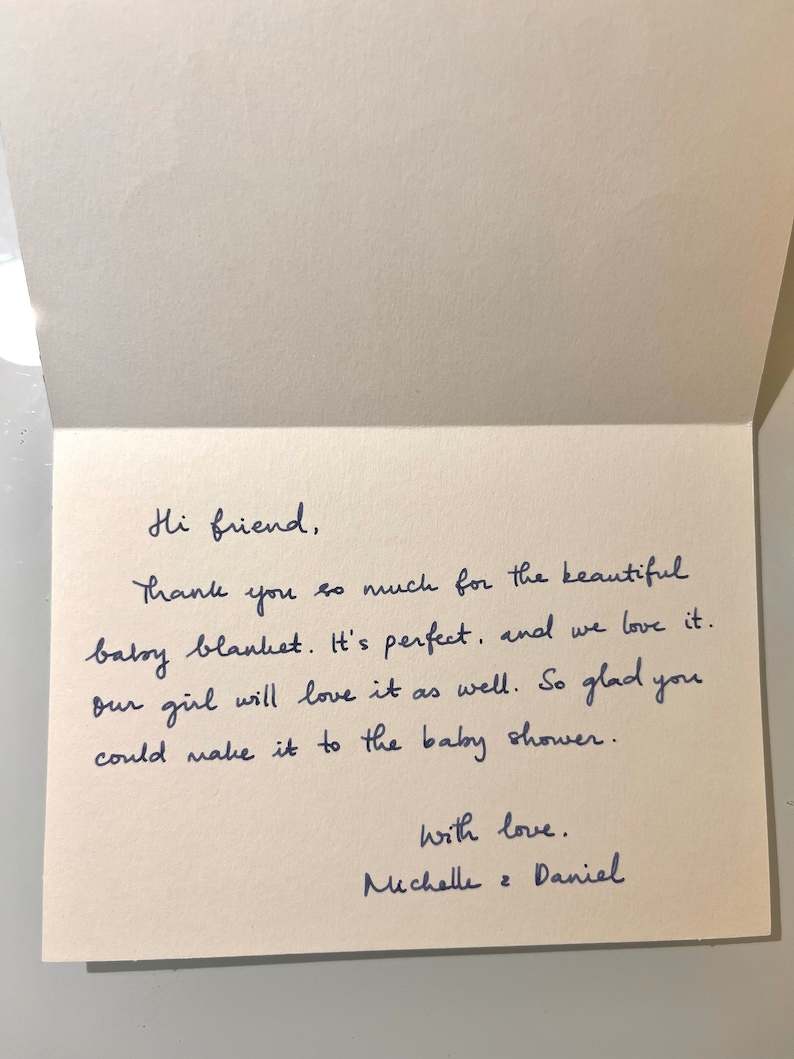 Hi friend,
Thank you so much for the beautiful
baby blanket. It's perfect, and we love it.
Our girl will love it as well. So glad you
could make it to the baby shower.
With love.
Michelle & Daniel